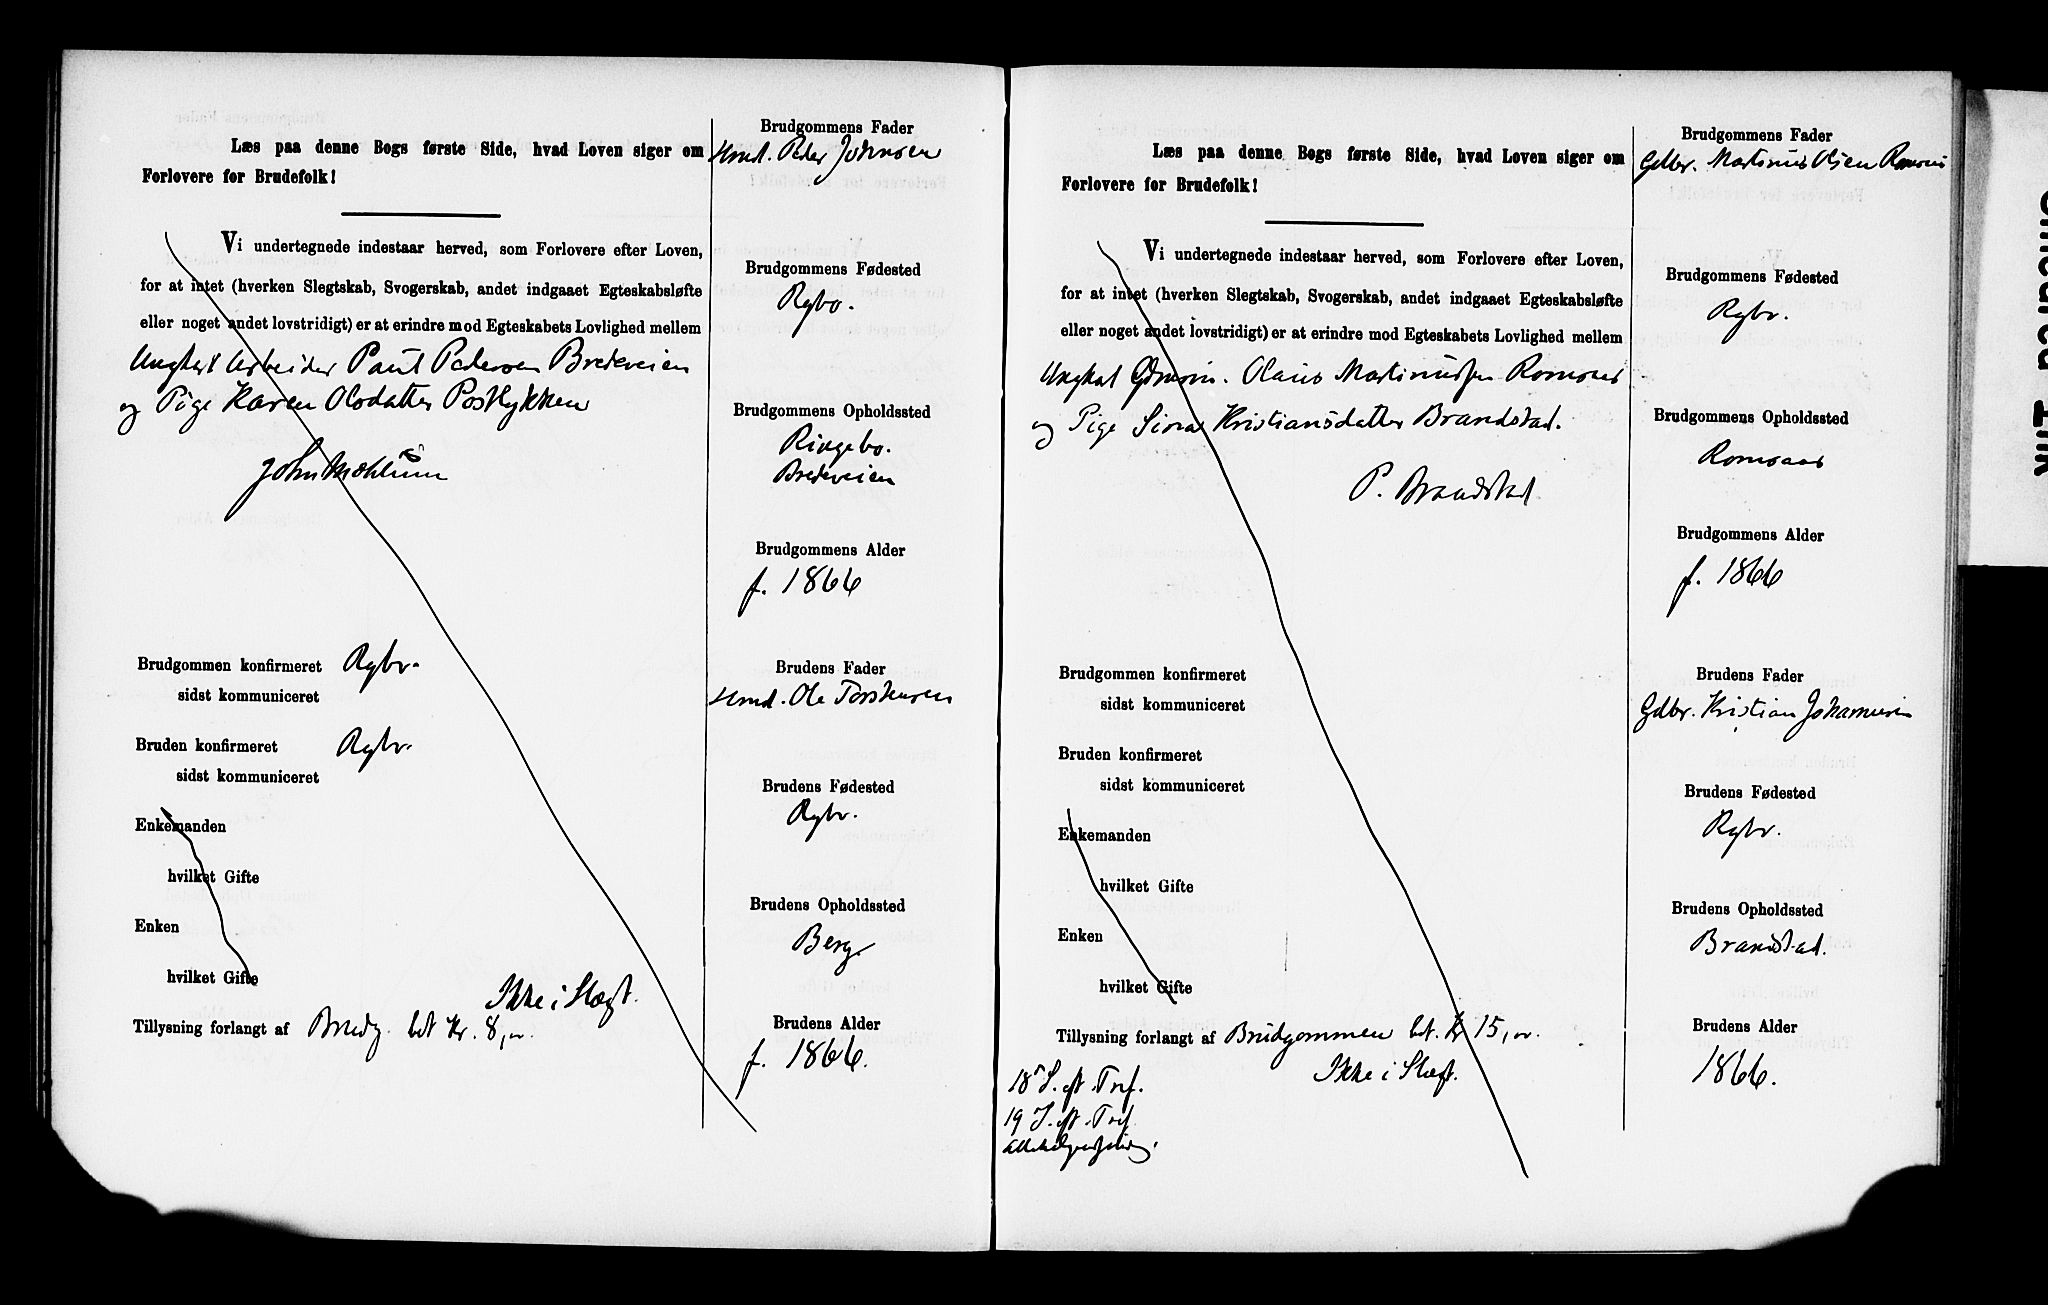 Læs paa denne Bogs første Side, hvad Loven siger om
Forlovere for Brudefolk!
Vi undertegnede indestaar herved, som Forlovere efter Loven,
for at intet (hverken Slegtskab, Svogerskab, andet indgaaet Egteskabsløfte
eller noget andet lovstridigt) er at erindre mod Egteskabets Lovlighed mellem
Ungkarl Arbeider Paul Pedersen Bredeveien
og Pige Karen Olsdatter
John Mæhlum
Brudgommen konfirmeret Rgbr.
sidst kommuniceret
Bruden konfirmeret Rgbr.
sidst kommuniceret
Enkemanden
hvilket Gifte
Enken
hvilket Gifte
Ikke i Slægt.
Tillysning forlangt af Brudg. bet Kr. 8,
Brudgommens Fader
Hmd. Peder Johnsen
Brudgommens Fødested
Rgbo.
Brudgommens Opholdssted
Ringebo.
Bredeveien
Brudgommens Alder
f. 1866
Brudens Fader
Hmd. Ole Torstensen
Brudens Fødested
Rgbr.
Brudens Opholdssted
Berg.
Brudens Alder
f. 1866.
Læs paa denne Bogs første Side, hvad Loven siger om
Forlovere for Brudefolk!
Vi undertegnede indestaar herved, som Forlovere efter Loven,
for at intet (hverken Slegtskab, Svogerskab, andet indgaaet Egteskabsløfte
eller noget andet lovstridigt) er at erindre mod Egteskabets Lovlighed mellem
Ungkarl Olaus Martinussen Romsaas
og Pige Sina Kristiansdatter Brandstad.
P. Brandstad
Brudgommen konfirmeret
sidst kommuniceret
Bruden konfirmeret
sidst kommuniceret
Enkemanden
hvilket Gifte
Enken
hvilket Gifte
Tillysning forlangt af Brudgommen bet. Kr 15,
Ikke i Slægt.
18 S. eft. Tref.
19 S. eft. Tref
Brudgommens Fader
Gdbr. Martinus Olsen Romsaas
Brudgommens Fødested
Rgbr.
Brudgommens Opholdssted
Romsaas
Brudgommens Alder
f. 1866
Brudens Fader
Gdbr. Kristian Johannesen
Brudens Fødested
Rgbr.
Brudens Opholdssted
Brandstad.
Brudens Alder
1866.